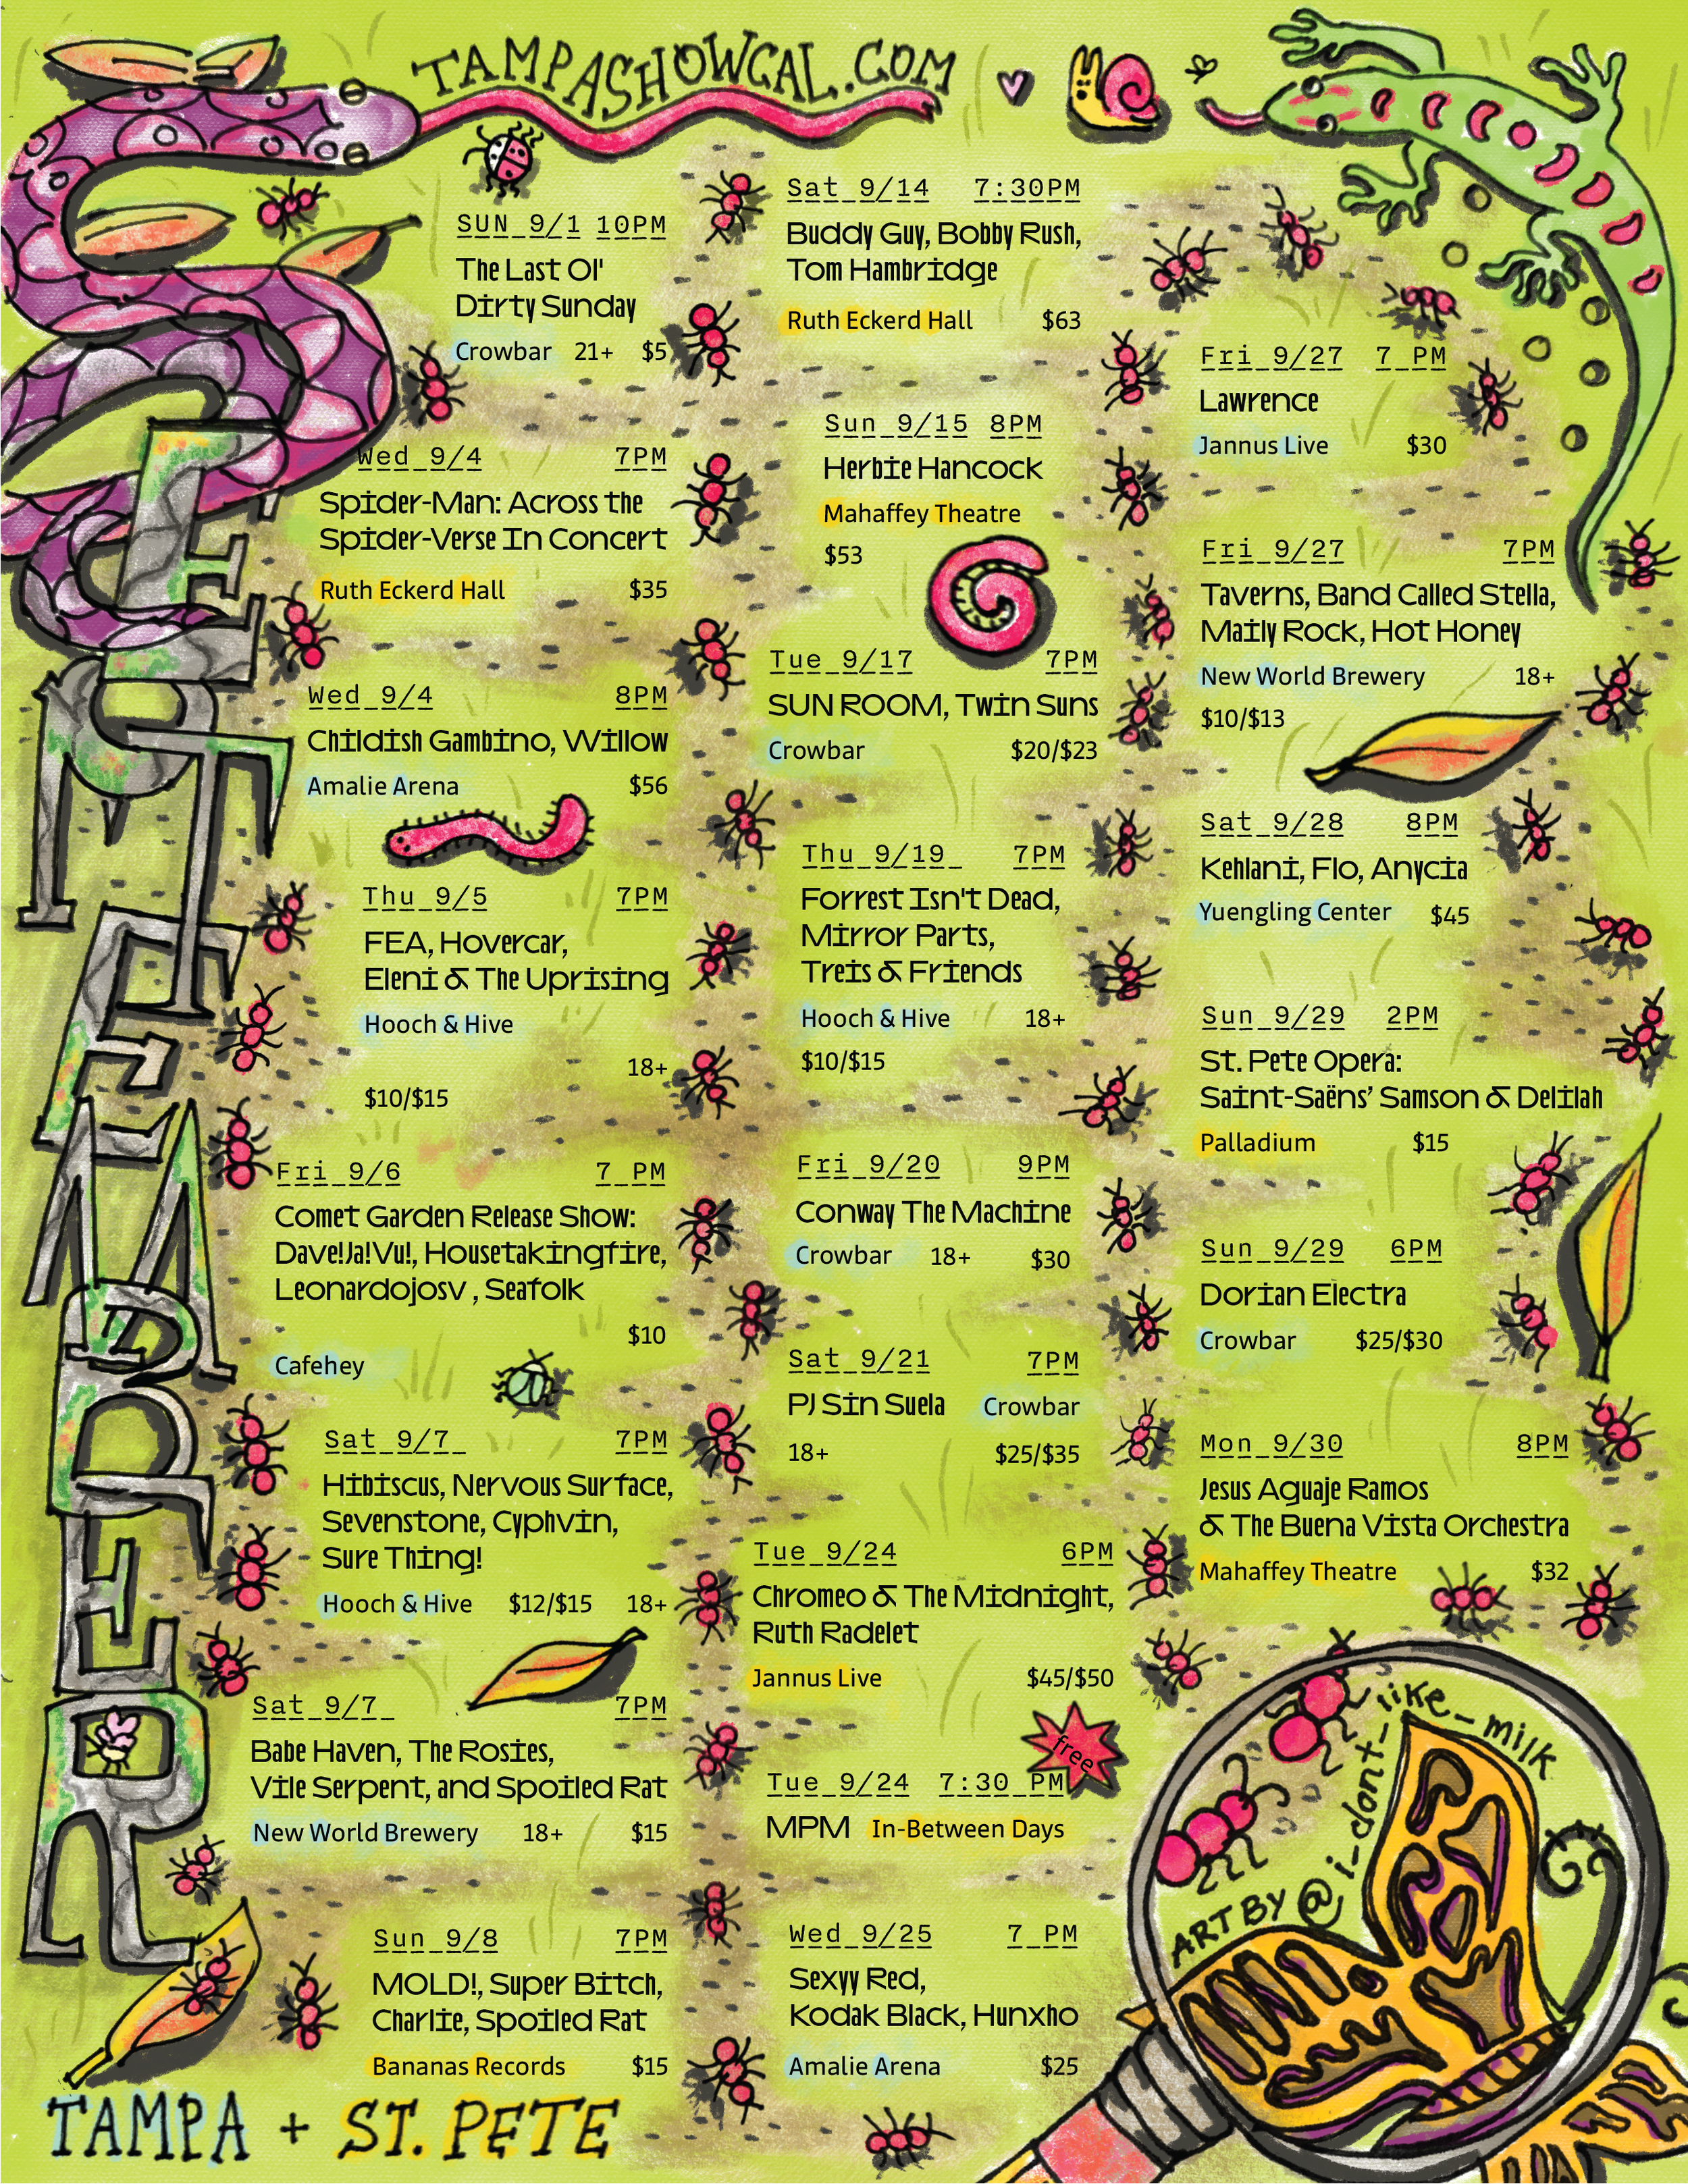 TAMPASHOWCAL.COM
SEPTEMBER
SUN 9/1 10PM
The Last Ol'
Dirty Sunday
Crowbar 21+ $5
Wed 9/4 7PM
Spider-Man: Across the
Spider-Verse In Concert
Ruth Eckerd Hall $35
Wed 9/4 8PM
Childish Gambino, Willow
Amalie Arena $56
Thu 9/5 7PM
FEA, Hovercar,
Eleni & The Uprising
Hooch & Hive
18+
$10/$15
Fri 9/6 7 PM
Comet Garden Release Show:
Dave!Ja!Vu!, Housetakingfire,
Leonardojosv , Seafolk
$10
Cafehey
Sat 9/7 7PM
Hibiscus, Nervous Surface,
Sevenstone, Cyphvin,
Sure Thing!
Hooch & Hive $12/$15 18+
Sat 9/7 7PM
Babe Haven, The Rosies,
Vile Serpent, and Spoiled Rat
New World Brewery 18+ $15
Sun 9/8 7PM
MOLD!, Super Bitch,
Charlie, Spoiled Rat
Bananas Records $15
TAMPA + ST. PETE
Sat 9/14 7:30PM
Buddy Guy, Bobby Rush,
Tom Hambridge
Ruth Eckerd Hall $63
Sun 9/15 8PM
Herbie Hancock
Mahaffey Theatre
$53
Tue 9/17 7PM
SUN ROOM, Twin Suns
Crowbar $20/$23
Thu 9/19 7PM
Forrest Isn't Dead,
Mirror Parts,
Treis & Friends
Hooch & Hive 18+
$10/$15
Fri 9/20 9PM
Conway The Machine
Crowbar 18+ $30
Sat 9/21 7PM
PJ Sin Suela Crowbar
18+ $25/$35
Tue 9/24 6PM
Chromeo & The Midnight,
Ruth Radelet
Jannus Live $45/$50
free
Tue 9/24 7:30 PM
MPM In-Between Days
Wed 9/25 7 PM
Sexyy Red,
Kodak Black, Hunxho
Amalie Arena $25
Fri 9/27 7 PM
Lawrence
Jannus Live $30
Fri 9/27 7PM
Taverns, Band Called Stella,
Maily Rock, Hot Honey
New World Brewery 18+
$10/$13
Sat 9/28 8PM
Kehlani, Flo, Anycia
Yuengling Center $45
Sun 9/29 2PM
St. Pete Opera:
Saint-Saëns' Samson & Delilah
Palladium $15
Sun 9/29 6PM
Dorian Electra
Crowbar $25/$30
Mon 9/30 8PM
Jesus Aguaje Ramos
& The Buena Vista Orchestra
Mahaffey Theatre $32
ART BY @i_dont_like_milk